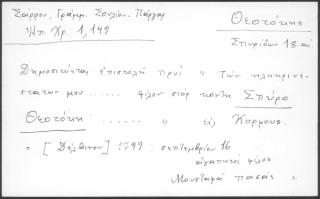 Σάρρου, Γράμμ. Σουλίου-Πάργας
Ἠπ. Χρ. 1, 149
Θεοτόκης
Σπυρίδων 18 αι
Δημοσιεύεται ἐπιστολή πρός « τῶν
μου ...... φίλον σιορ κοντε Σπύρο
Θεοτόκη ...... » εἰς Κορφους.
[Δέλβινον] 1799 : σεπτεμβρίου 16
ἀγαπητός φίλος
Μουσταφά πασάς »